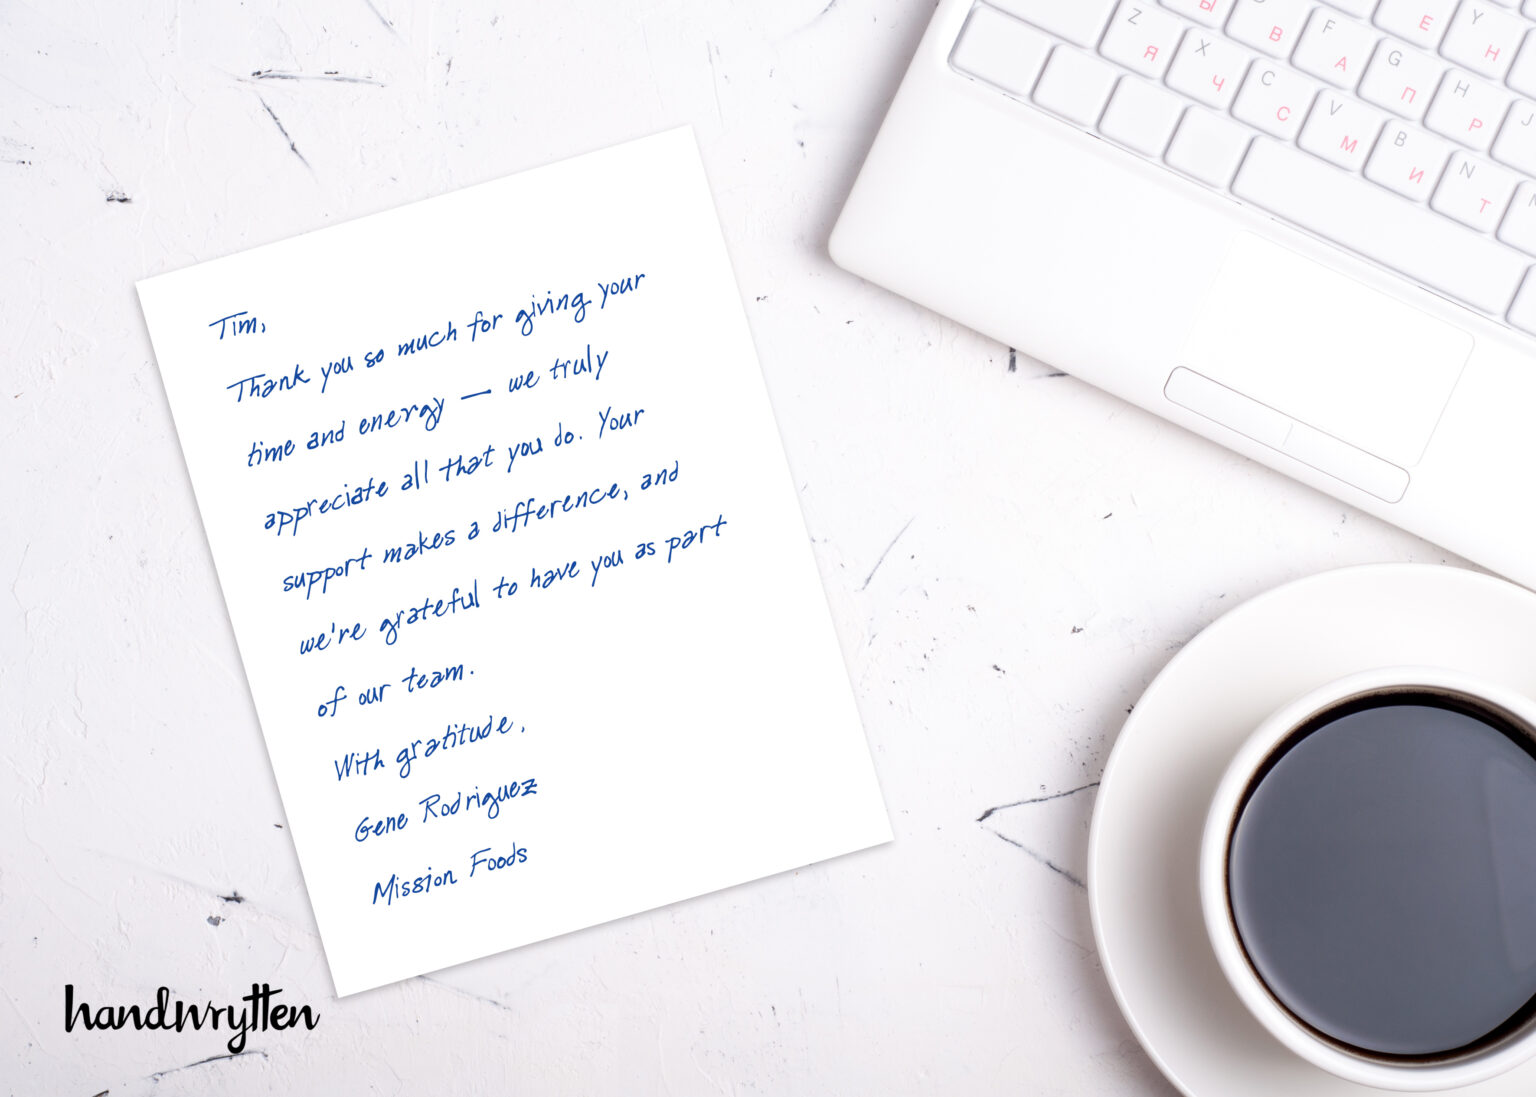 Tim,
Thank you so much for giving your
time and energy — we truly
appreciate all that you do. Your
support makes a difference, and
we're grateful to have you as part
of our team.
With gratitude,
Gene Rodriguez
Mission Foods
handwrytten
Z Я
X Ч
C С
V М
B И
N Т
Ы
В
F А
G П
H Р
J
Е
Y Н